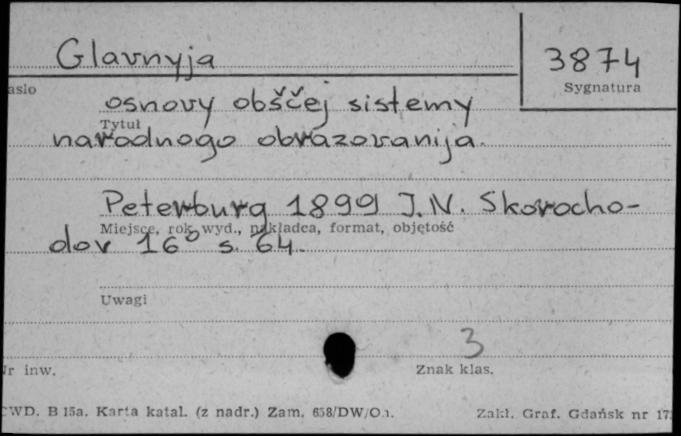 Glavnyja 3874
asło Sygnatura
osnovy obščej sistemy
Tytuł
narodnogo obrazovanija.
Peterburg 1899 J.N. Skorocho-
Miejsce, rok wyd., nakładca, format, objętość
dov 16° s. 64.
Uwagi
3
r inw. Znak klas.
CWD. B 15a. Karta katal. (z nadr.) Zam. 658/DW/O Zakł. Graf. Gdańsk nr 17